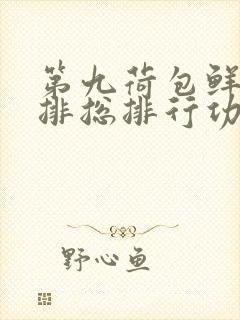 第九荷包鲜
排总排行功
野心鱼